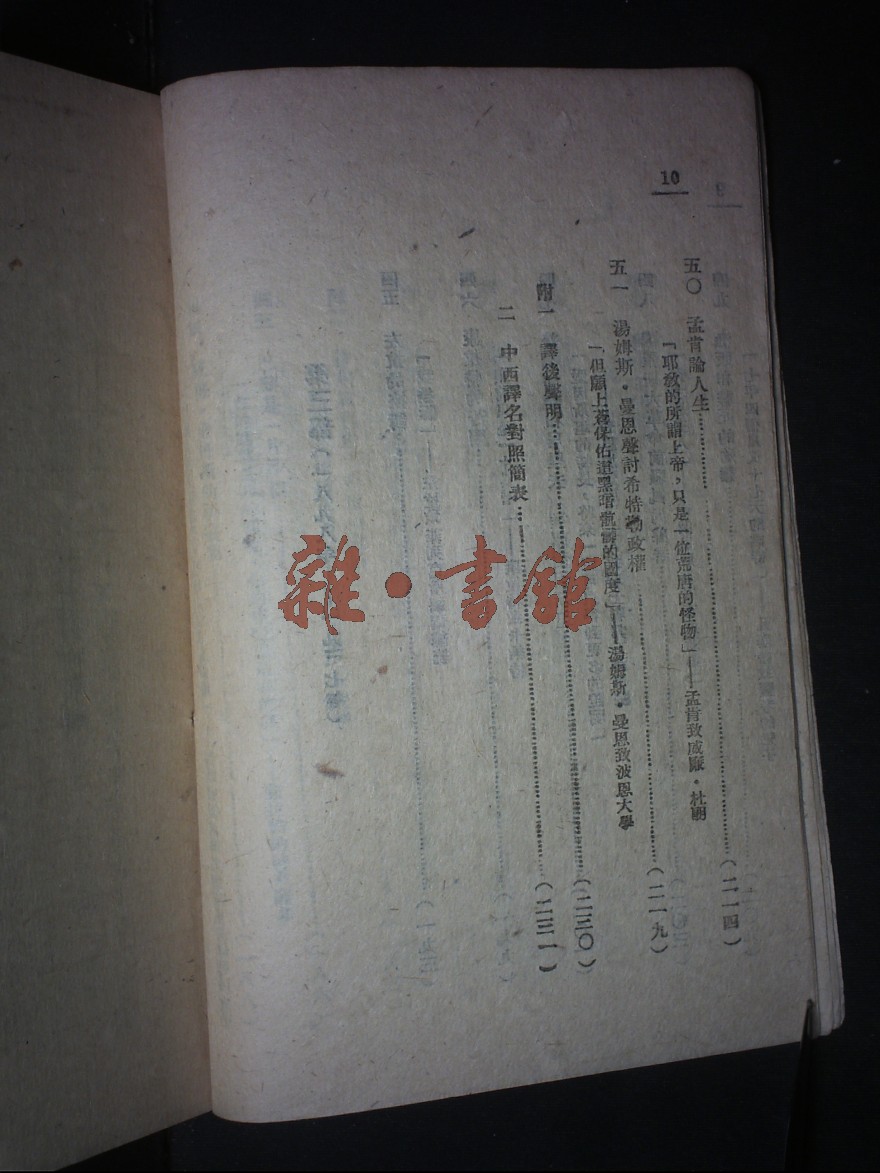 10
五〇　孟肯論人生……………（二一四）
「耶敎的所謂上帝，只是一位荒唐的怪物」——孟肯致威廉・杜朗
五一　湯姆斯・曼恩聲討希特勒政權……………（二一九）
「但願上蒼保佑這黑暗的國度」——湯姆斯・曼恩致波恩大學
附一　譯後聲明……………（二三〇）
二　中西譯名對照簡表……………（二三一）
雜・書館